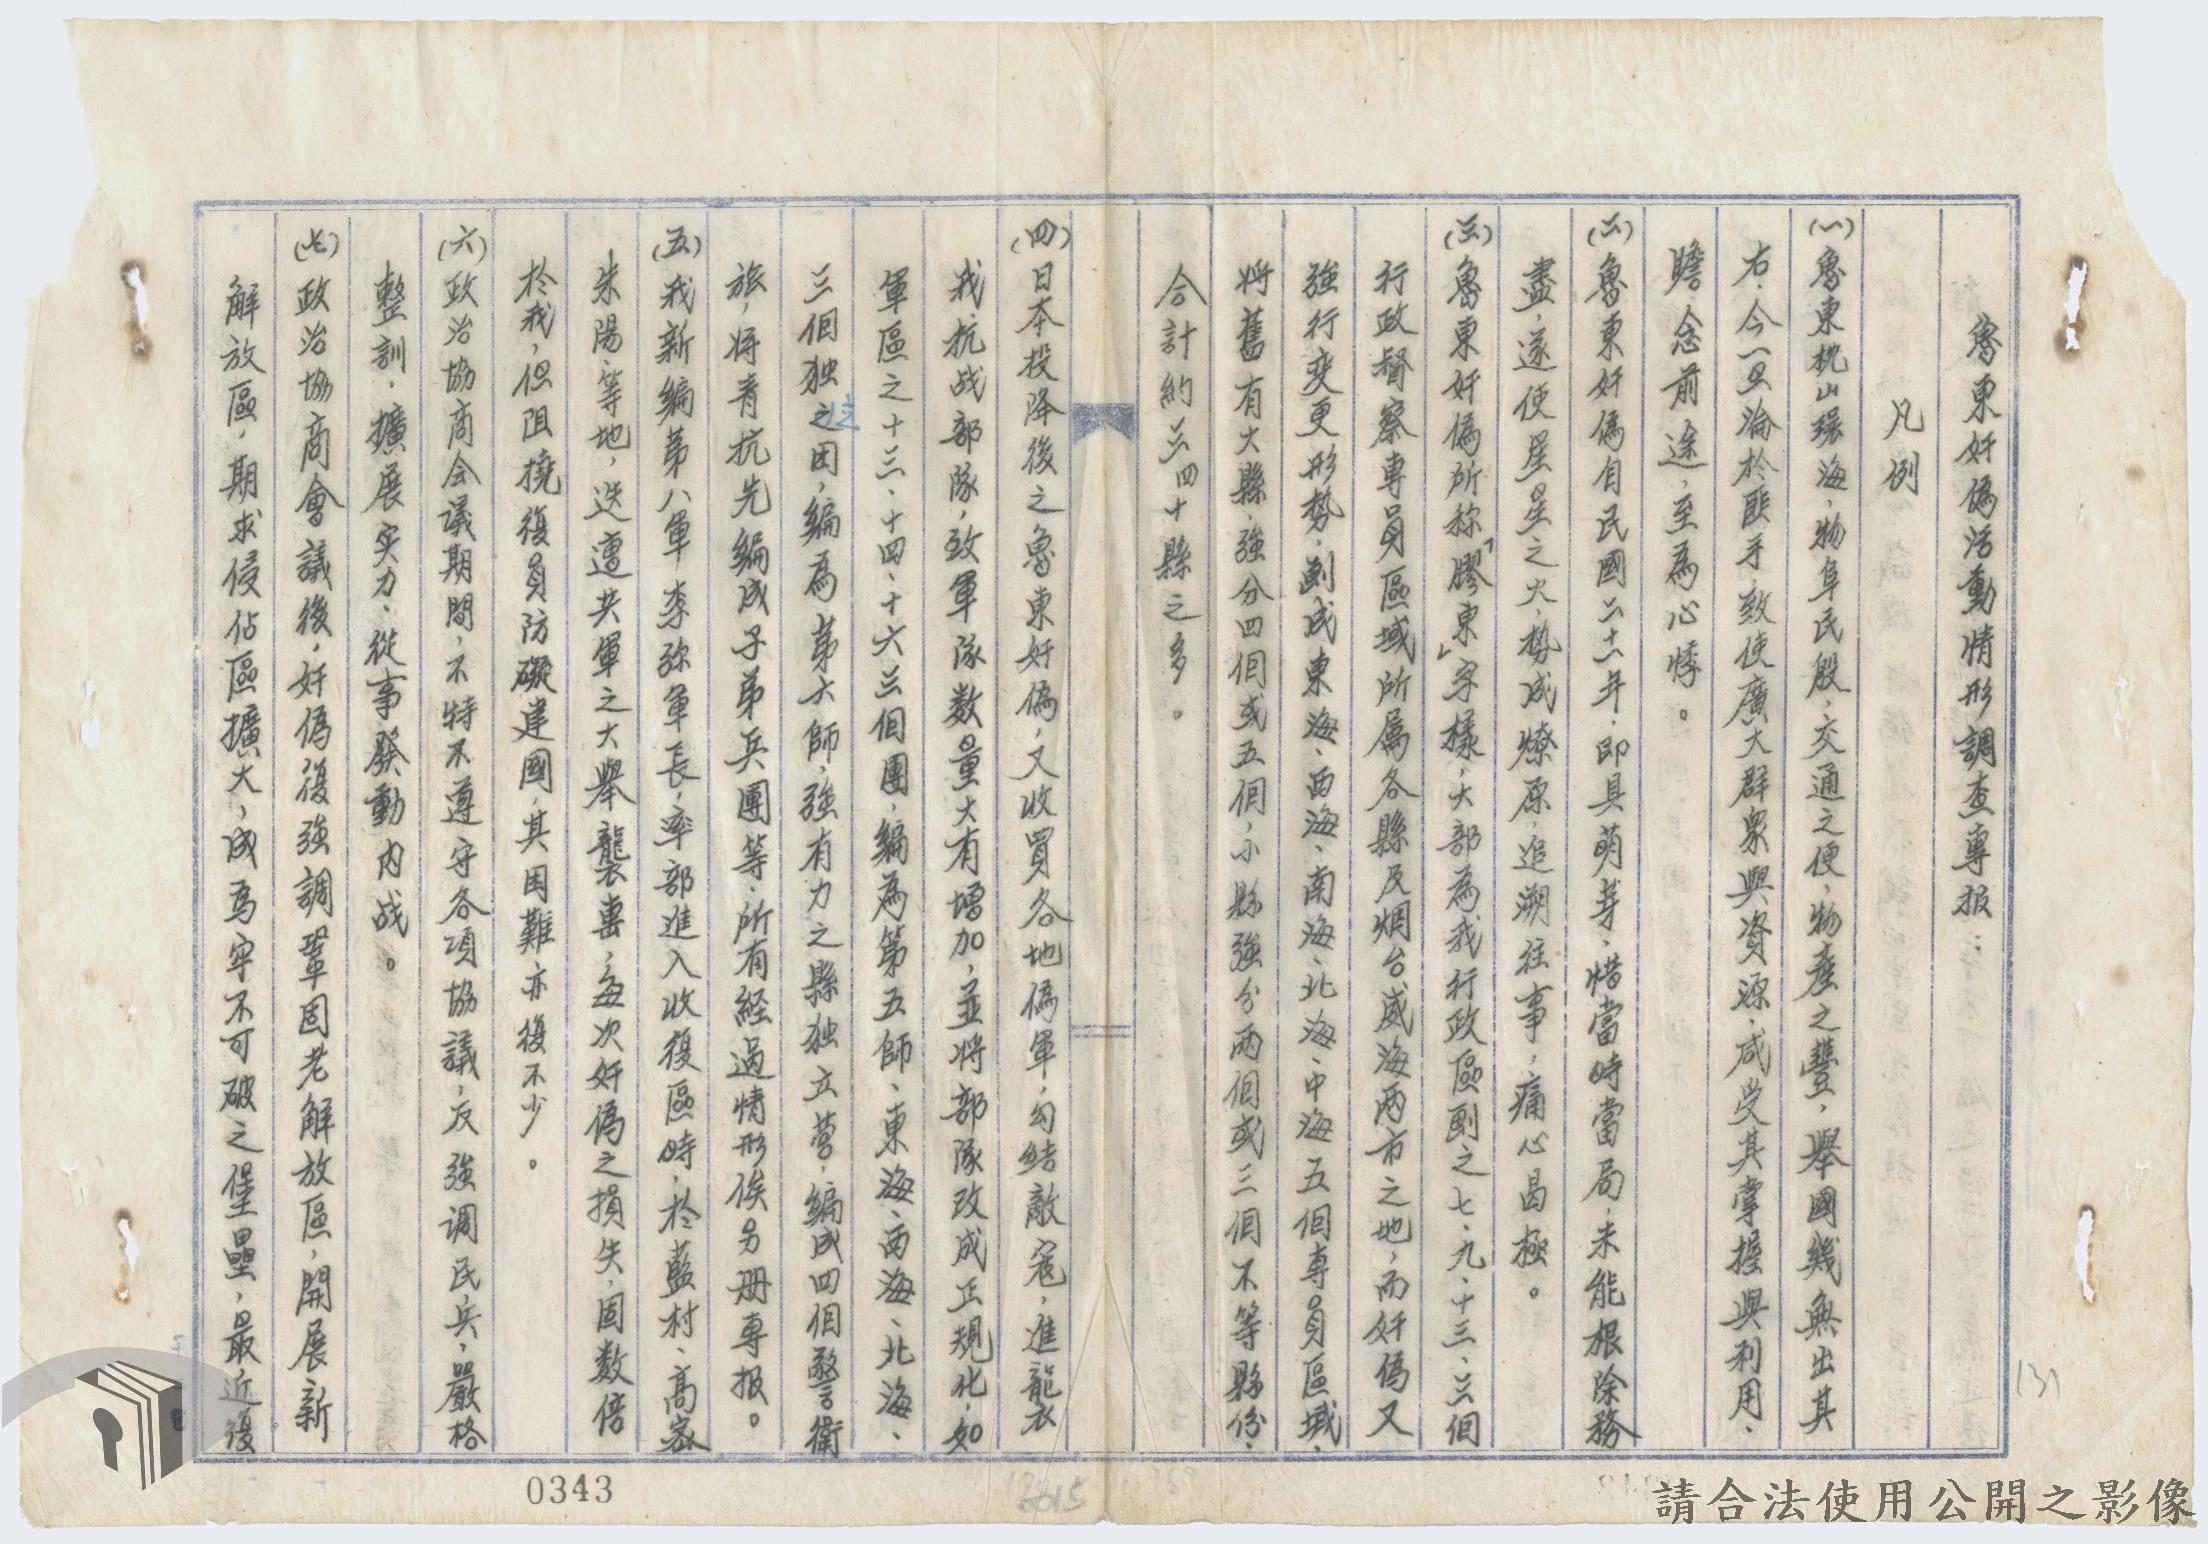 魯東奸偽活動情形調查專报：
凡例
(一)魯東枕山環海，物阜民殷，交通之便，物產之豐，舉國幾無出其
右．今一旦淪於匪手，致使廣大群眾與資源，咸受其掌握與利用，
瞻念前途，至為心悸。
(二)魯東奸偽自民國二十一年，即具萌芽，惜當時當局，未能根除務
盡，遂使星星之火，勢成燎原，追溯往事，痛心曷極。
(三)魯東奸偽所称「膠東」字樣，大部為我行政區劃之七、九、十三、三個
行政督察專員區域所屬各縣及烟台威海两市之地，而奸偽又
強行变更形勢，劃成東海、西海、南海、北海、中海五個專員區域，
将舊有大縣，強分四個或五個，小縣強分兩個或三個不等縣份，
合計約三四十縣之多。
(四)日本投降後之魯東奸偽，又收買各地偽軍，勾結敵寇，進襲
我抗战部隊，致軍隊数量大有增加，並将部隊改成正規化，如
軍區之十三、十四、十六三個團，編為第五師、東海、西海、北海、
三個独立团，編為第六師，強有力之縣独立营，編成四個警衛
旅，将青抗先編成子弟兵團等，所有経過情形俟另册專报。
(五)我新編第八軍李弥軍長，率部進入收復區時，於藍村、高密
朱陽等地，迭遭共軍之大舉襲擊，每次奸偽之損失，固数倍
於我，但阻撓復員防礙建國，其困難亦復不少。
(六)政治協商会議期間，不特不遵守各項協議，反強调民兵，嚴格
整訓，擴展实力，從事發動内战。
(七)政治協商會議後，奸偽復強調鞏固老解放區，開展新
解放區，期求侵佔區擴大，成為牢不可破之堡壘，最近復
131
0343
2015
請合法使用公開之影像